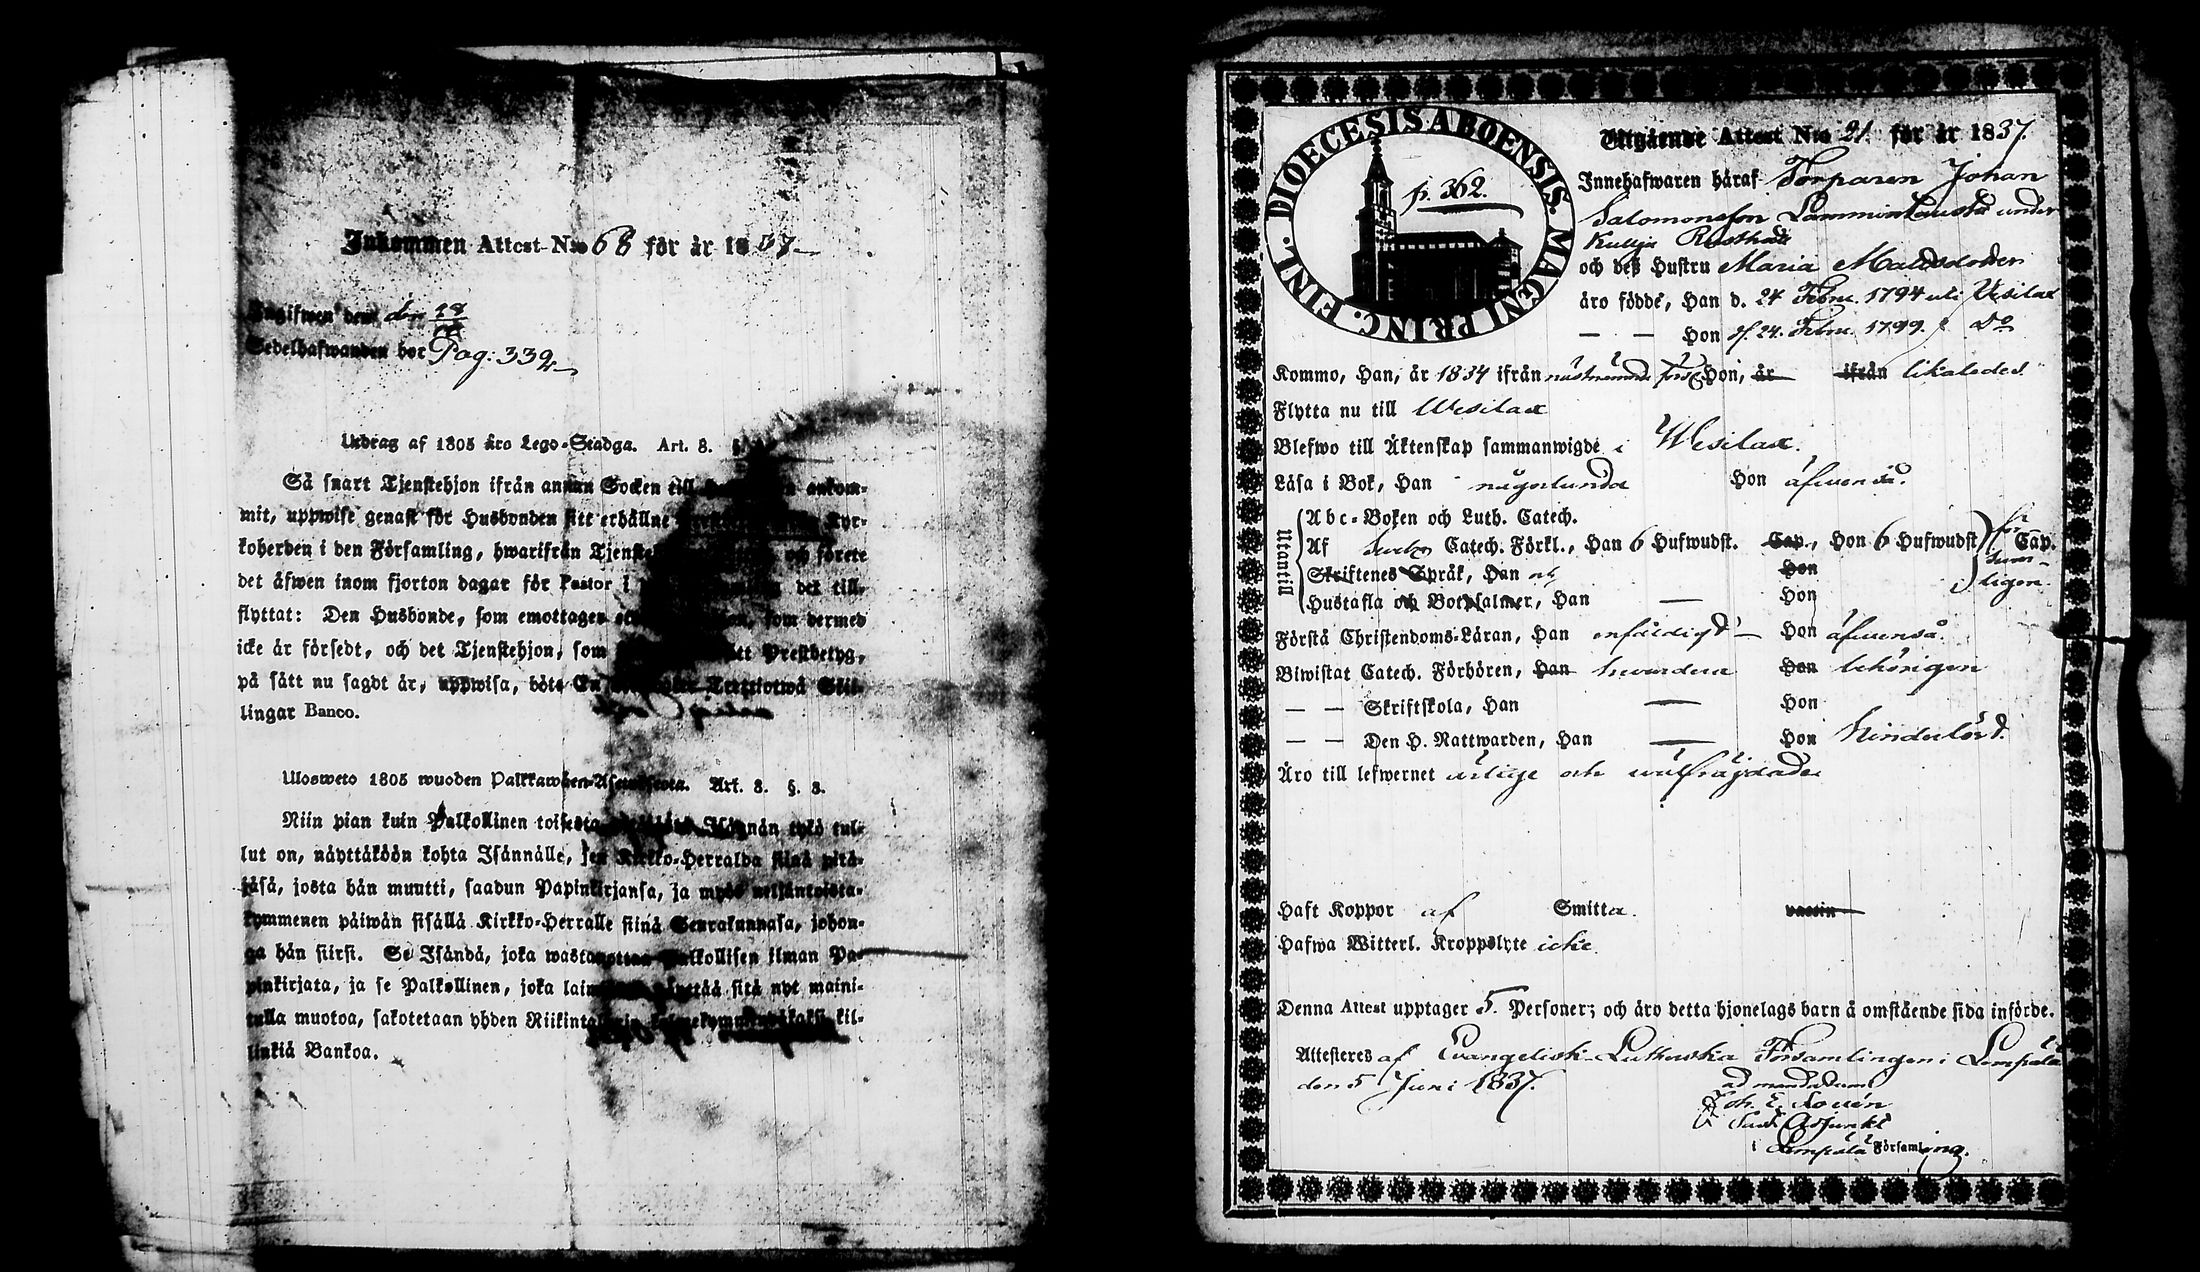 Inkommen Attest N:o 68 för år 1837
Ingifwen den
Sedelhafwanden bor Pag: 339
Utdrag af 1805 års Lego-Stadga. Art. 8. §
Så snart Tjenstehjon ifrån annan Socken till ankom-
mit, uppwise genast för Husbonden sitt erhållne Kyr-
koherden i den Församling, hwarifrån och förete
det äfwen inom fjorton dagar för Pastor i det till-
flyttat: Den Husbonde, som emottager som dermed
icke är försedt, och det Tjenstehjon, som Prestbetyg,
på sätt nu sagdt är, uppwisa, böte En Trettiotwå Skil-
lingar Banco.
Ulosweto 1805 wuoden Palkkawäen-Asetuksesta. Art. 8. §. 8.
Niin pian kuin Palkollinen toisesta tykö tul-
lut on, näyttäköön kohta Isännälle, sen Kirkko-Herralda siinä pitä-
jäsä, josta hän muutti, saadun Papinkirjansa, ja myös neljäntoista-
kymmenen päiwän sisällä Kirkko-Herralle siinä Seurakunnasa, johon-
ga hän siirsi. Se Isändä, joka wastaanottaa Palkollisen ilman Pa-
pinkirjata, ja se Palkollinen, joka näyttää sitä nyt maini-
tulla muotoa, sakotetaan yhden Riikintalarin kolmekymmentäkaksi kil-
linkiä Bankoa.
DIOECESIS ABOENSIS. MAGNI PRINC. FINL.
p. 362.
Utgående Attest N:o 21. för år 1837.
Innehafwaren häraf Torparen Johan
Salomonsson under
Rusthåll
och deß Hustru Maria Matsdotter
äro födde, Han d. 24 Febru. 1794 uti Vesilax
— — Hon d. 24. Febru. 1799. i D:o
Kommo, Han, år 1834 ifrån Hon, år ifrån likaledes
Flytta nu till Wesilax
Blefwo till Äktenskap sammanwigde i Wesilax.
Läsa i Bok, Han någorlunda Hon äfwenså.
Utantill
Abc-Boken och Luth. Catech.
Af Catech. Förkl., Han 6 Hufwudst. Cap., Hon 6 Hufwudst. Cap.
Skriftenes Språk, Han Hon
Hustafla och Botpsalmer, Han — Hon
Förstå Christendoms-Läran, Han enfaldigt — Hon äfwenså.
Biwistat Catech. Förhören, Han hwardera Hon behörigen
— — Skriftskola, Han — Hon
— — Den H. Nattwarden, Han — Hon hinderlöst.
Äro till lefwernet ärlige och wälfrägdade
Haft Koppor af Smitta. vaccin
Hafwa Witterl. Kroppslyte icke
Denna Attest upptager 5. Personer; och äro detta hjonelags barn å omstående sida införde.
Attesteres af Evangelisk-Lutherska Församlingen i Lempälä
den 5 Juni 1837.
ad mandatum
Joh. E.
Adjunkt
i Lempälä Församling.